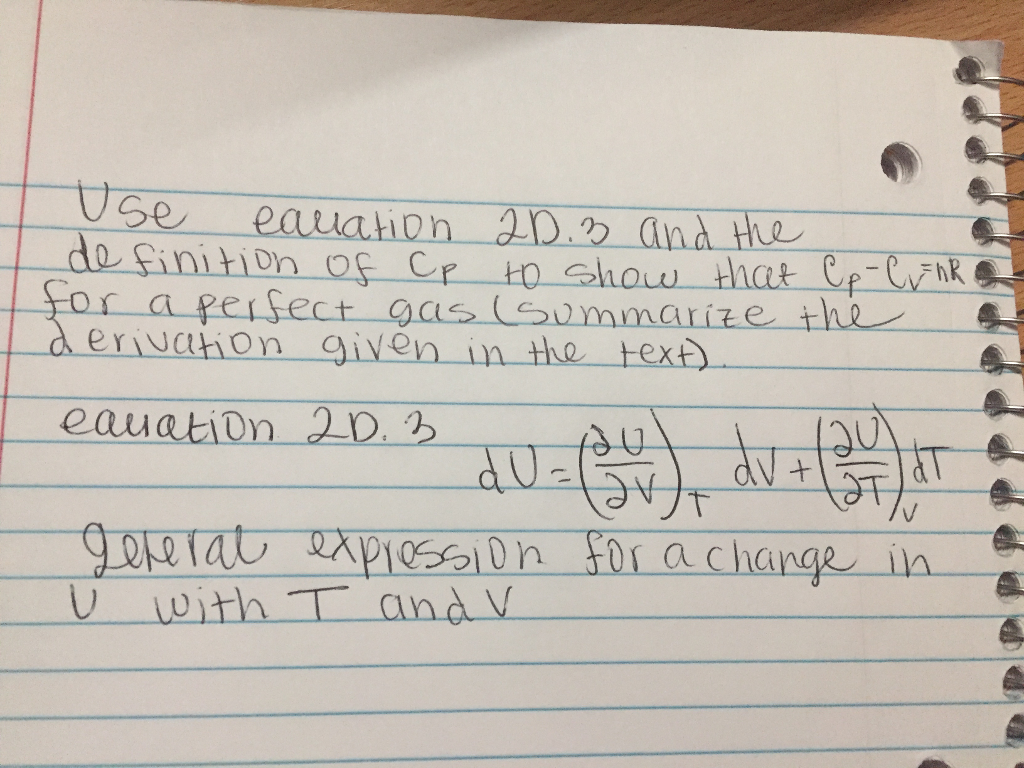 Use eauation 2D.3 and the
definition of Cp to show that Cp-Cv=nR
for a perfect gas (summarize the
derivation given in the text).
eauation 2D.3
dU=(∂U/∂V)_T dV+(∂U/∂T)_V dT
general expression for a change in
U with T and V